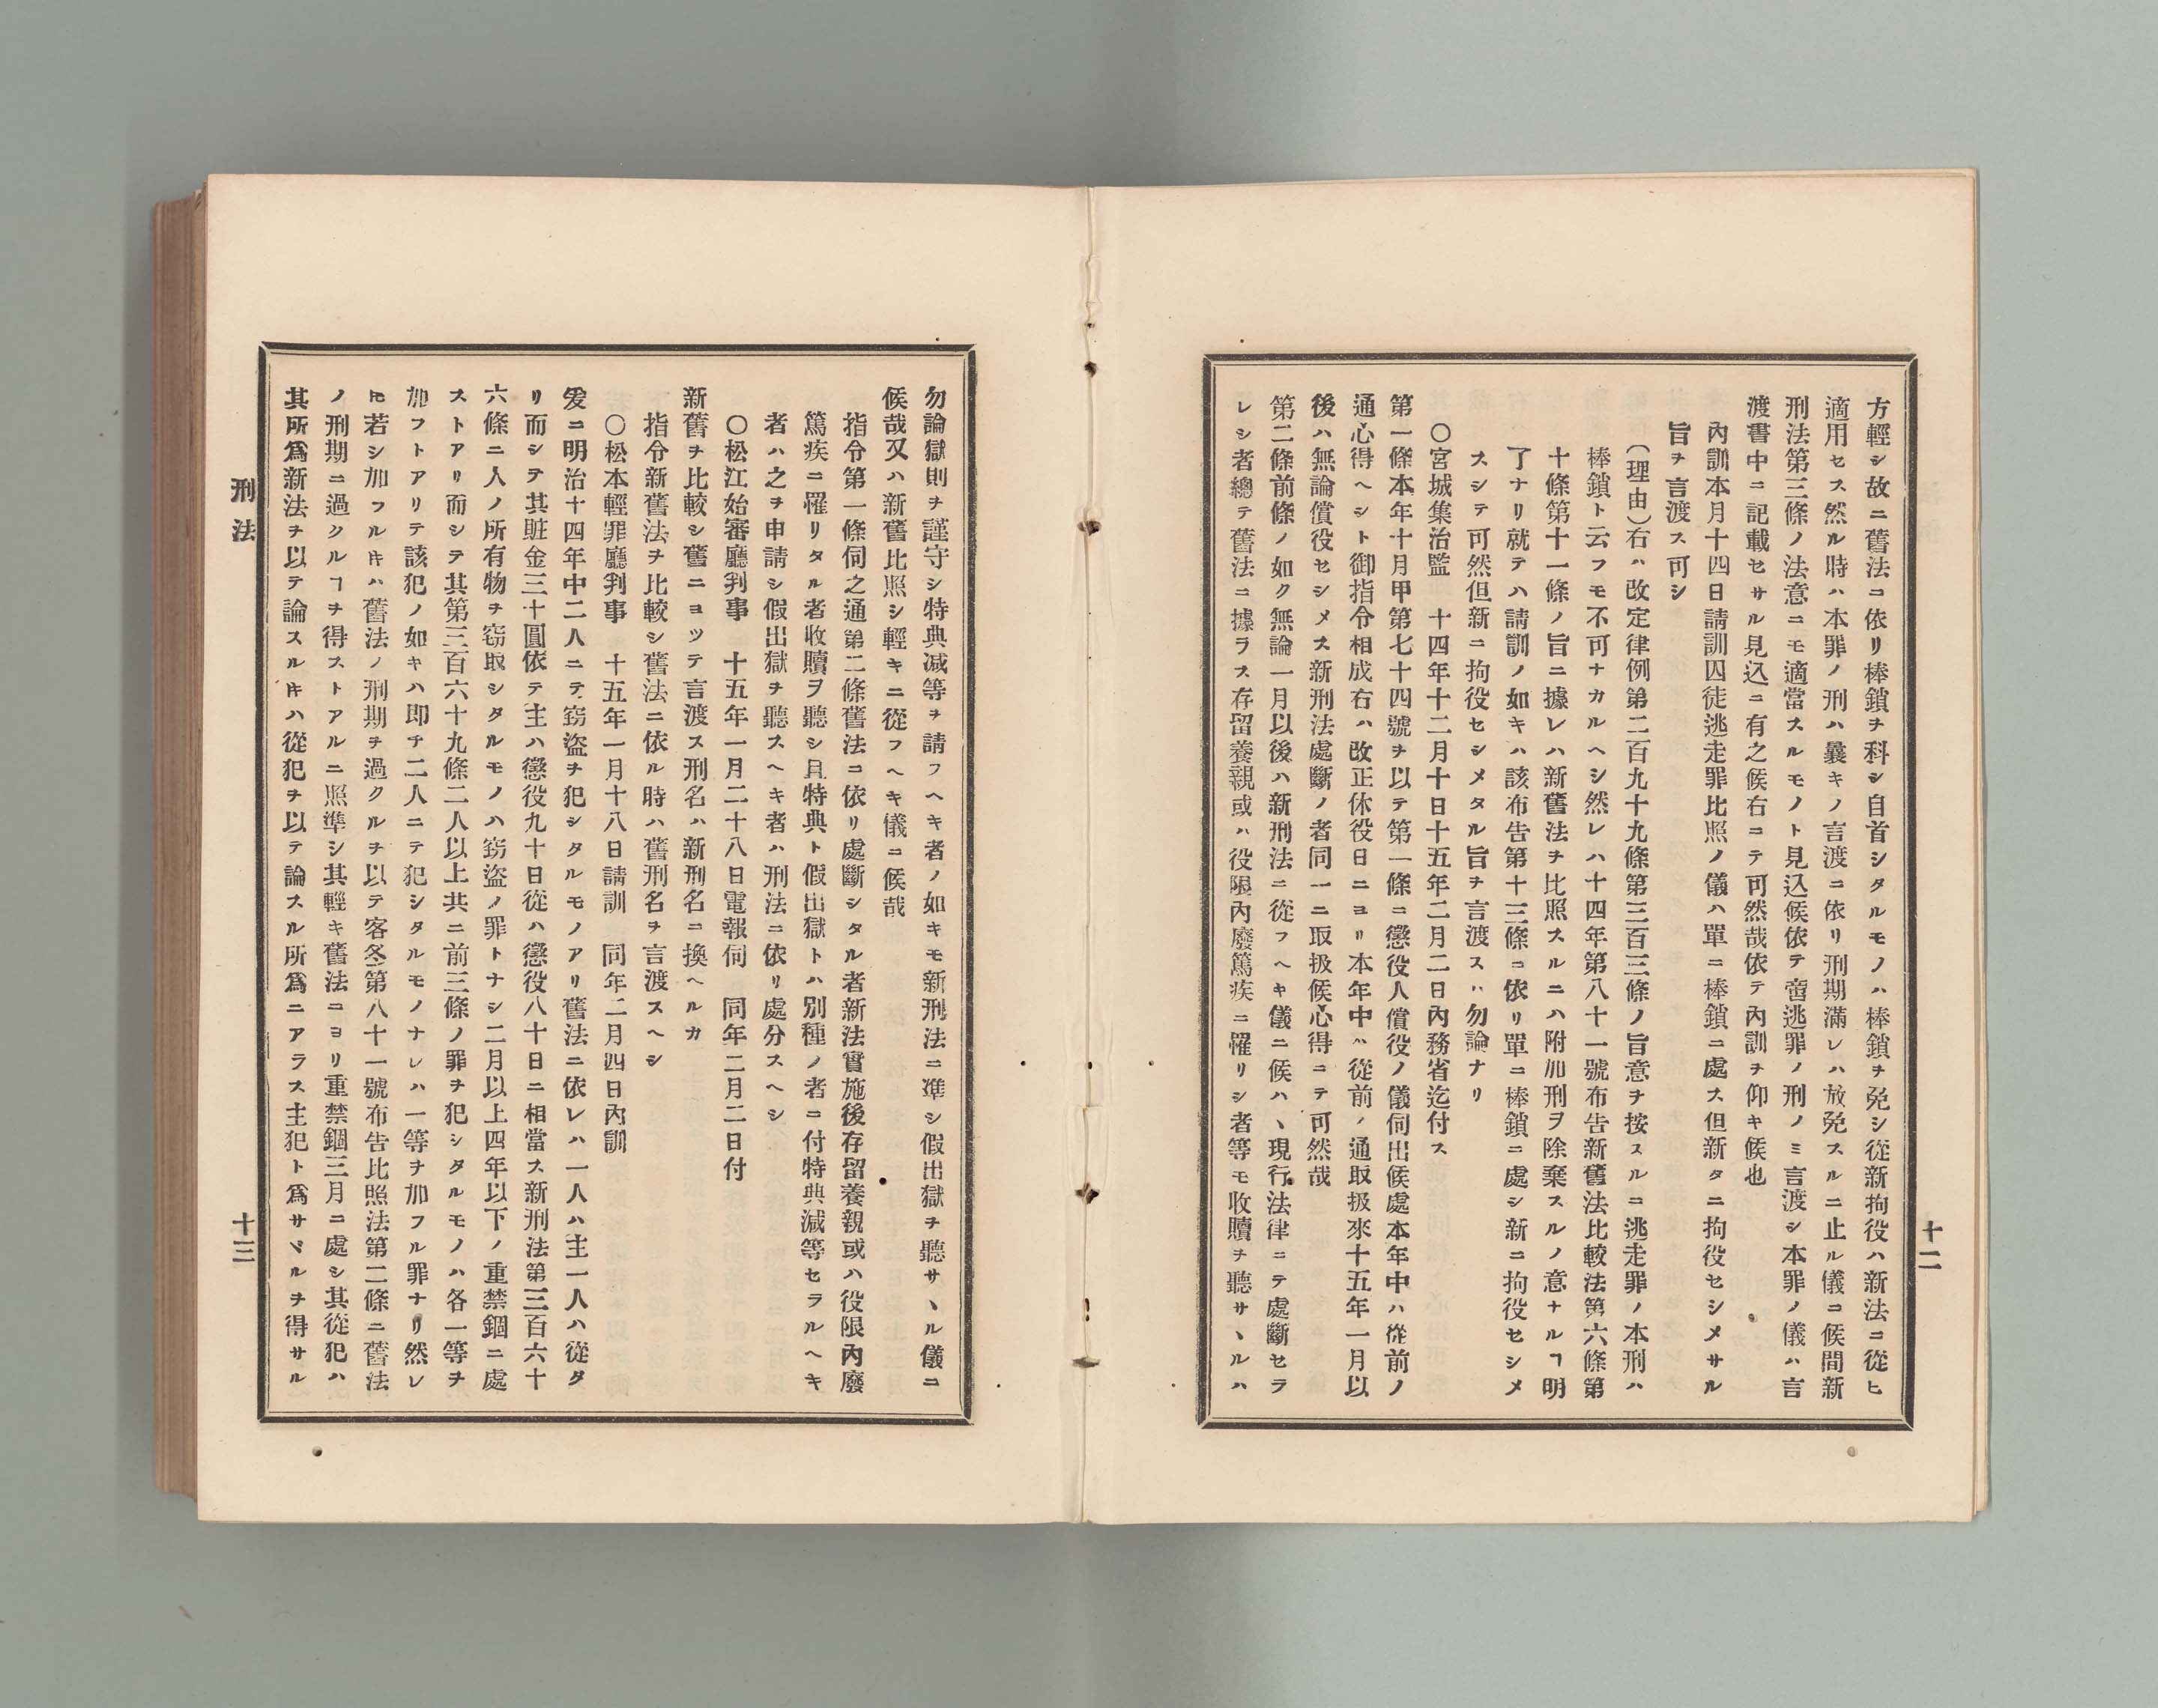 方輕シ故ニ舊法ニ依リ棒鎖ヲ科シ自首シタルモノハ棒鎖ヲ免シ從新拘役ハ新法ニ從ヒ
適用セス然ル時ハ本罪ノ刑ハ曩キノ言渡ニ依リ刑期滿レハ放免スルニ止ル儀ニ候間新
刑法第三條ノ法意ニモ適當スルモノト見込候依テ啻逃罪ノ刑ノミ言渡シ本罪ノ儀ハ言
渡書中ニ記載セサル見込ニ有之候右ニテ可然哉依テ內訓ヲ仰キ候也
內訓本月十四日請訓囚徒逃走罪比照ノ儀ハ單ニ棒鎖ニ處ス但新タニ拘役セシメサル
旨ヲ言渡ス可シ
(理由)右ハ改定律例第二百九十九條第三百三條ノ旨意ヲ按スルニ逃走罪ノ本刑ハ
棒鎖ト云フモ不可ナカルヘシ然レハ十四年第八十一號布告新舊法比較法第六條第
十條第十一條ノ旨ニ據レハ新舊法ヲ比照スルニハ附加刑ヲ除棄スルノ意ナルヿ明
了ナリ就テハ請訓ノ如キハ該布告第十三條ニ依リ單ニ棒鎖ニ處シ新ニ拘役セシメ
スシテ可然但新ニ拘役セシメタル旨ヲ言渡スハ勿論ナリ
〇宮城集治監 十四年十二月十日十五年二月二日內務省迄付ス
第一條本年十月甲第七十四號ヲ以テ第一條ニ懲役人償役ノ儀伺出候處本年中ハ從前ノ
通心得ヘシト御指令相成右ハ改正休役日ニヨリ本年中ハ從前ノ通取扱來十五年一月以
後ハ無論償役セシメス新刑法處斷ノ者同一ニ取扱候心得ニテ可然哉
第二條前條ノ如ク無論一月以後ハ新刑法ニ從フヘキ儀ニ候ハヽ現行法律ニテ處斷セラ
レシ者總テ舊法ニ據ラス存留養親或ハ役限內廢篤疾ニ罹リシ者等モ收贖ヲ聽サヽルハ
十二
勿論獄則ヲ謹守シ特典減等ヲ請フヘキ者ノ如キモ新刑法ニ準シ假出獄ヲ聽サヽル儀ニ
候哉又ハ新舊比照シ輕キニ從フヘキ儀ニ候哉
指令第一條伺之通第二條舊法ニ依リ處斷シタル者新法實施後存留養親或ハ役限內廢
篤疾ニ罹リタル者收贖ヲ聽シ且特典ト假出獄トハ別種ノ者ニ付特典減等セラルヘキ
者ハ之ヲ申請シ假出獄ヲ聽スヘキ者ハ刑法ニ依リ處分スヘシ
〇松江始審廳判事 十五年一月二十八日電報伺 同年二月二日付
新舊ヲ比較シ舊ニヨツテ言渡ス刑名ハ新刑名ニ換ヘルカ
指令新舊法ヲ比較シ舊法ニ依ル時ハ舊刑名ヲ言渡スヘシ
〇松本輕罪廳判事 十五年一月十八日請訓 同年二月四日內訓
爰ニ明治十四年中二人ニテ竊盜ヲ犯シタルモノアリ舊法ニ依レハ一人ハ主一人ハ從タ
リ而シテ其贓金三十圓依テ主ハ懲役九十日從ハ懲役八十日ニ相當ス新刑法第三百六十
六條ニ人ノ所有物ヲ竊取シタルモノハ竊盜ノ罪トナシ二月以上四年以下ノ重禁錮ニ處
ストアリ而シテ其第三百六十九條二人以上共ニ前三條ノ罪ヲ犯シタルモノハ各一等ヲ
加フトアリテ該犯ノ如キハ即チ二人ニテ犯シタルモノナレハ一等ヲ加フル罪ナリ然レ
𪜈若シ加フルキハ舊法ノ刑期ヲ過クルヲ以テ客冬第八十一號布告比照法第二條ニ舊法
ノ刑期ニ過クルヿヲ得ストアルニ照準シ其輕キ舊法ニヨリ重禁錮三月ニ處シ其從犯ハ
其所爲新法ヲ以テ論スルキハ從犯ヲ以テ論スル所爲ニアラス主犯ト爲サヾルヲ得サル
刑法
十三